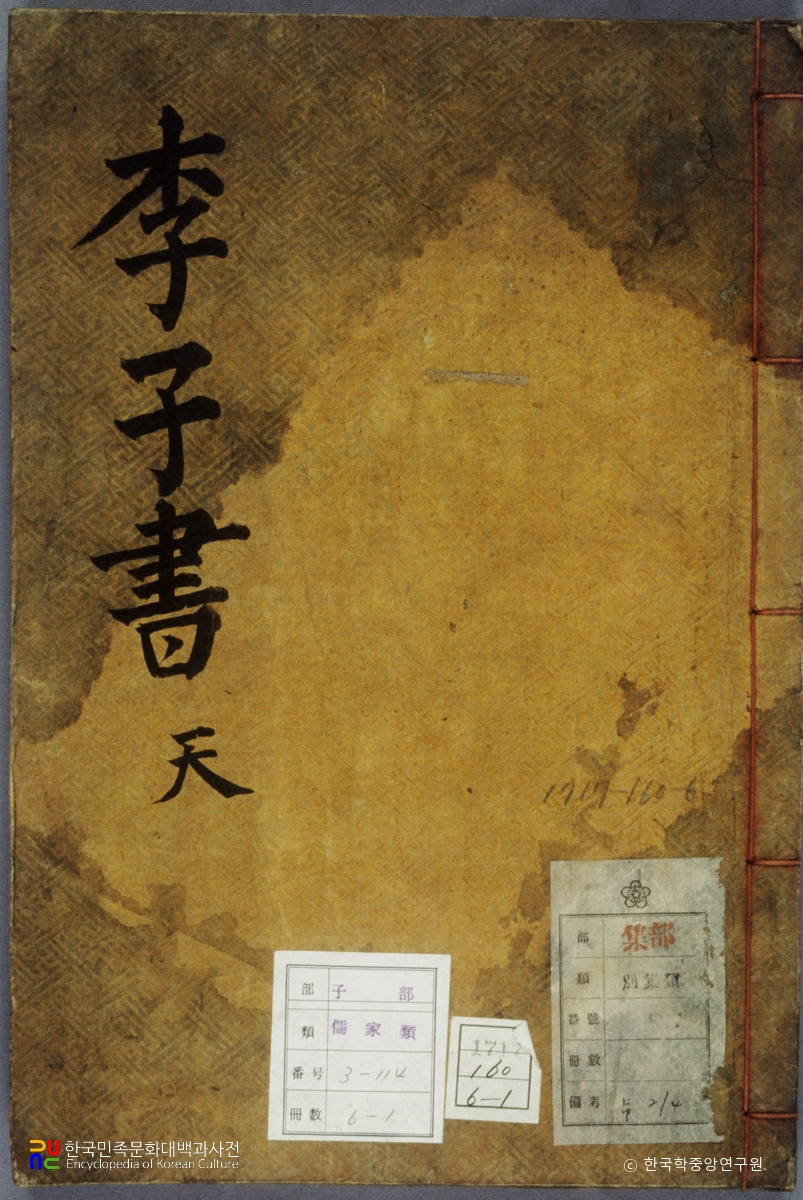 李子書 天
1717-160-6
部 集部
類 別集類
番號
冊數
備考 2/4
部 子 部
類 儒家類
番号 3-114
冊数 6-1
1717
160
6-1
한국민족문화대백과사전
Encyclopedia of Korean Culture
© 한국학중앙연구원.